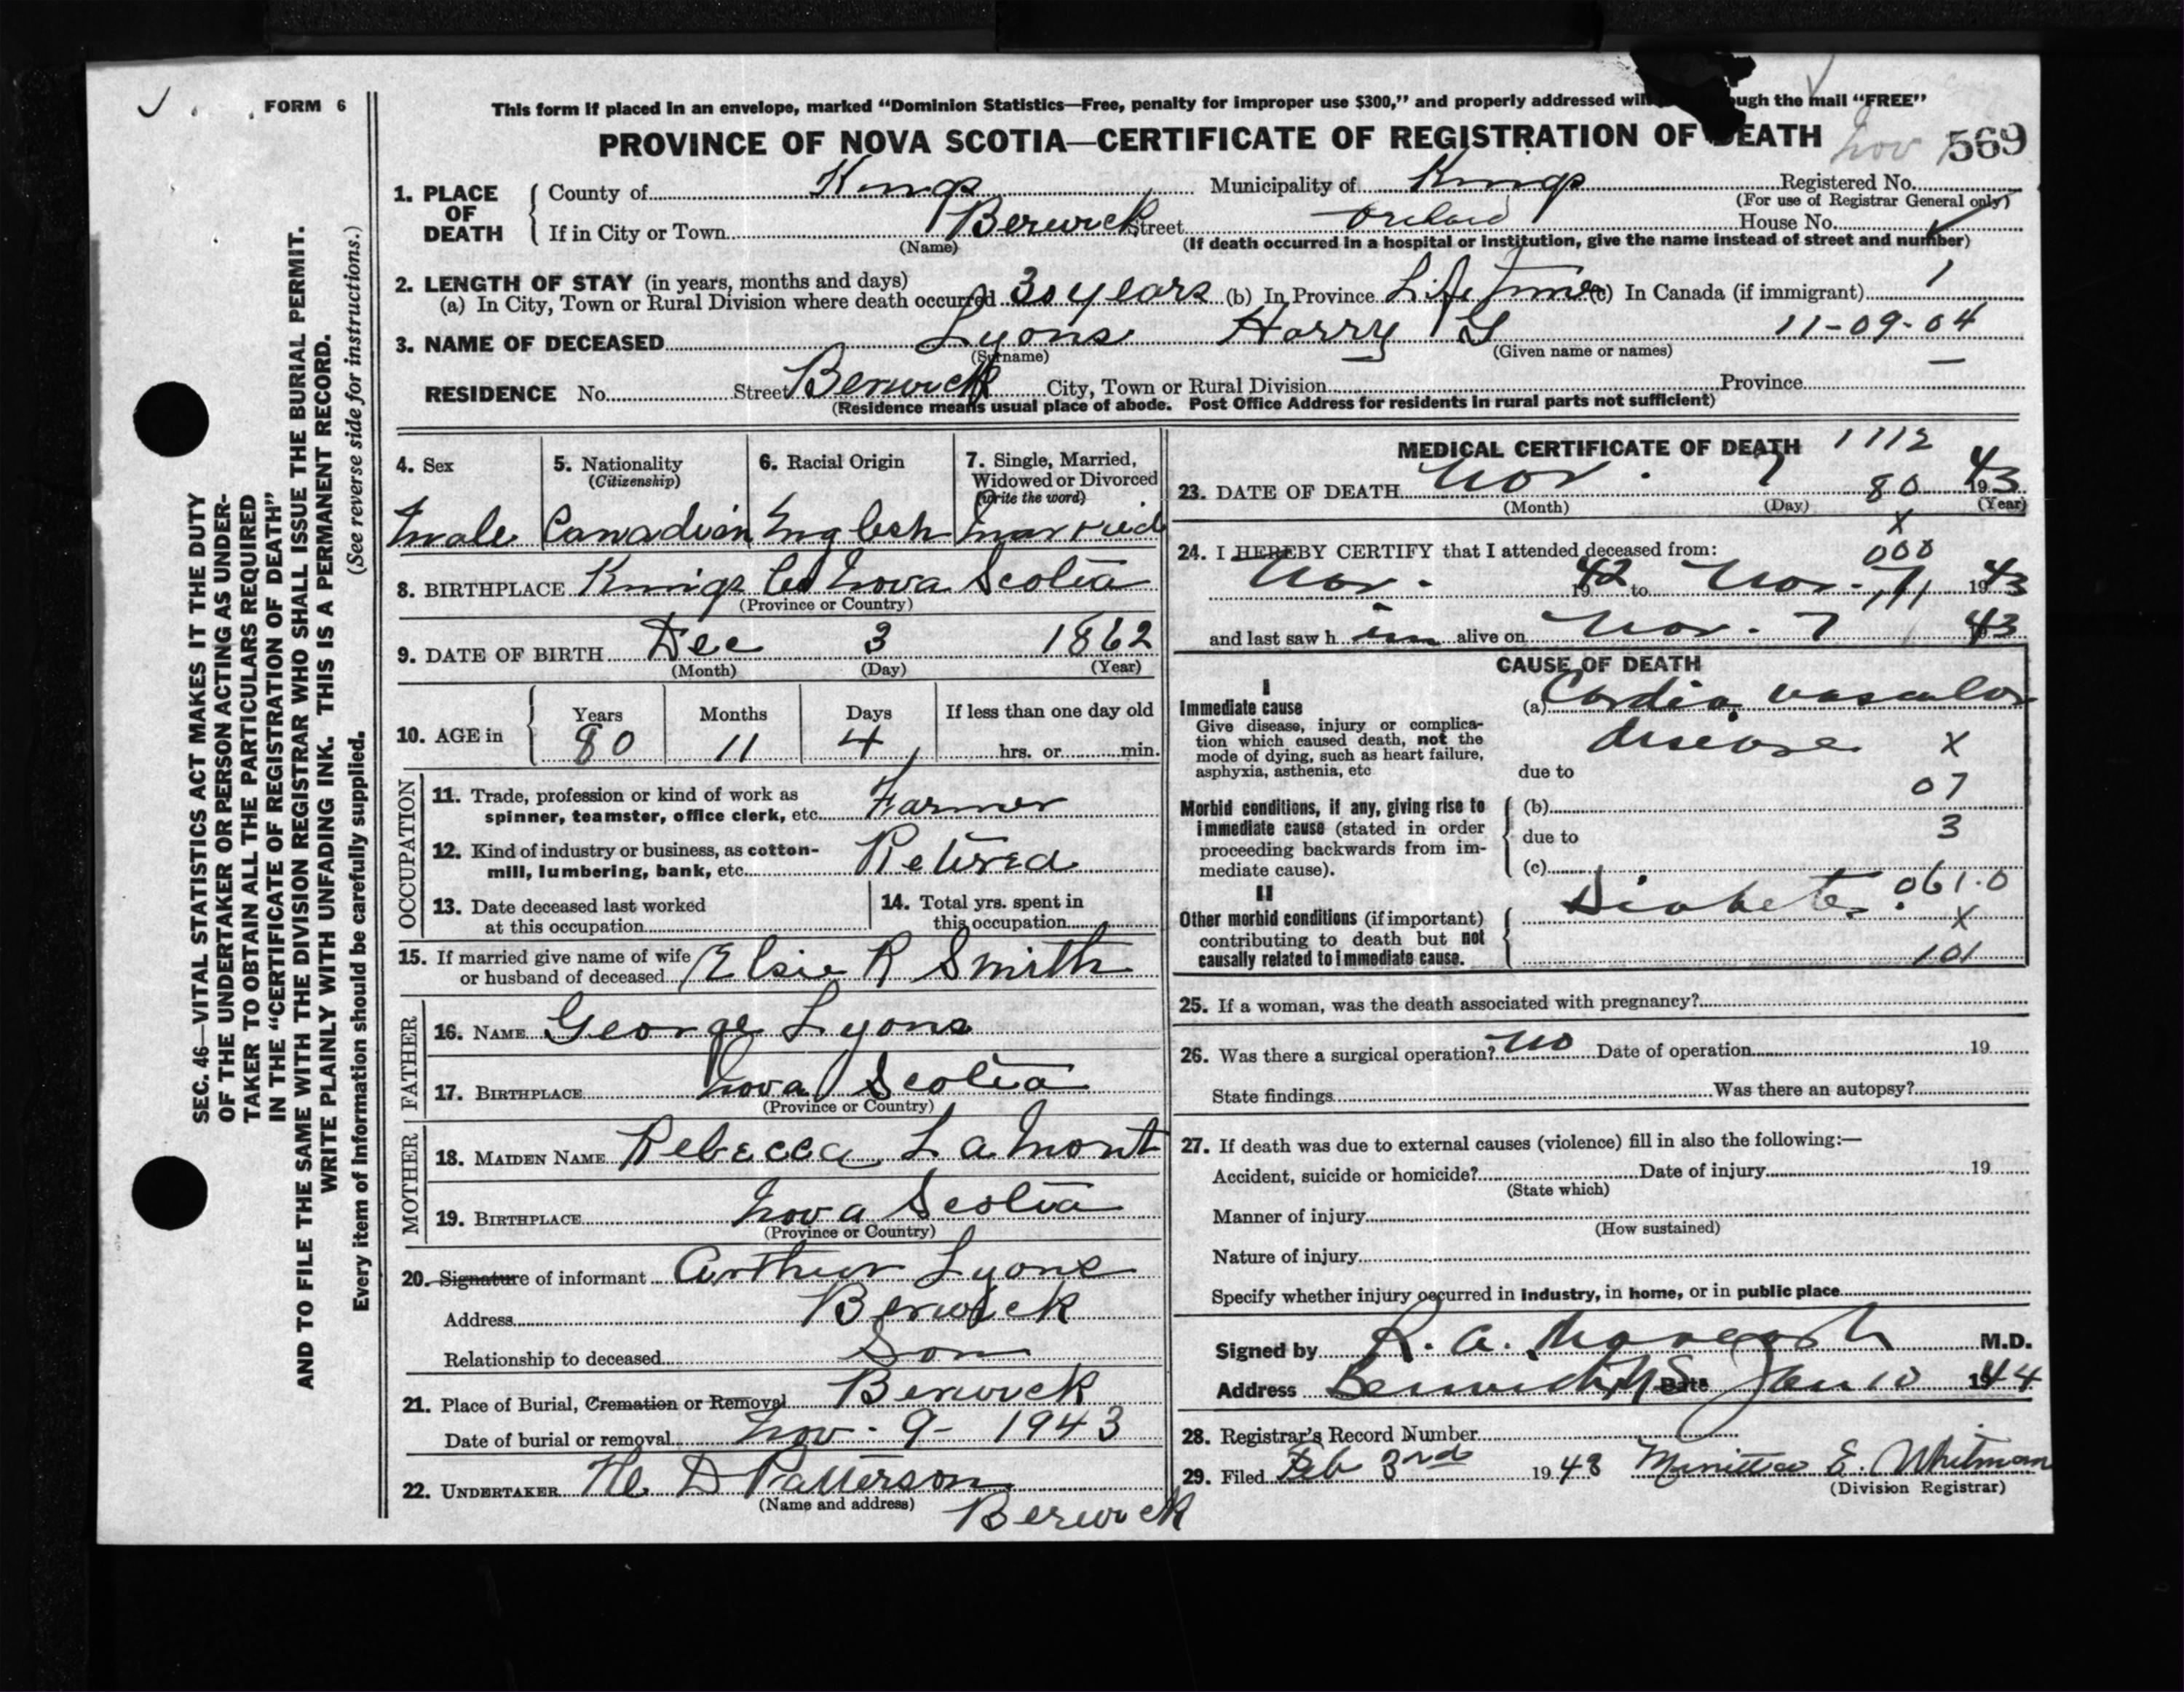 FORM 6
This form if placed in an envelope, marked “Dominion Statistics—Free, penalty for improper use $300,” and properly addressed will ough the mail “FREE”
PROVINCE OF NOVA SCOTIA—CERTIFICATE OF REGISTRATION OF DEATH
Nov 569
1. PLACE OF DEATH
County of Kings Municipality of Kings Registered No.
(For use of Registrar General only)
If in City or Town Berwick Street Orchard House No.
(Name) (If death occurred in a hospital or institution, give the name instead of street and number)
2. LENGTH OF STAY (in years, months and days)
(a) In City, Town or Rural Division where death occurred 30 years (b) In Province Life time (c) In Canada (if immigrant)
3. NAME OF DECEASED Lyons Harry G 11-09-04
(Surname) (Given name or names)
RESIDENCE No. Street Berwick City, Town or Rural Division Province
(Residence means usual place of abode. Post Office Address for residents in rural parts not sufficient)
4. Sex
male
5. Nationality
(Citizenship)
Canadian
6. Racial Origin
English
7. Single, Married,
Widowed or Divorced
(write the word)
married
8. BIRTHPLACE Kings Co Nova Scotia
(Province or Country)
9. DATE OF BIRTH Dec 3 1862
(Month) (Day) (Year)
10. AGE in Years Months Days If less than one day old
80 11 4 hrs. or min.
OCCUPATION
11. Trade, profession or kind of work as
spinner, teamster, office clerk, etc. Farmer
12. Kind of industry or business, as cotton-
mill, lumbering, bank, etc. Retired
13. Date deceased last worked
at this occupation
14. Total yrs. spent in
this occupation
15. If married give name of wife
or husband of deceased Elsie R Smith
FATHER
16. NAME George Lyons
17. BIRTHPLACE Nova Scotia
(Province or Country)
MOTHER
18. MAIDEN NAME Rebecca LaMont
19. BIRTHPLACE Nova Scotia
(Province or Country)
20. Signature of informant Arthur Lyons
Address Berwick
Relationship to deceased Son
21. Place of Burial, Cremation or Removal Berwick
Date of burial or removal Nov - 9 - 1943
22. UNDERTAKER D Patterson
(Name and address) Berwick
MEDICAL CERTIFICATE OF DEATH 1112
23. DATE OF DEATH Nov. 7 80 1943
(Month) (Day) (Year)
X
24. I HEREBY CERTIFY that I attended deceased from: 000
Nov. 1942 to Nov. 7 111 1943
and last saw h im alive on Nov. 7 1943
CAUSE OF DEATH
I
Immediate cause
Give disease, injury or complica-
tion which caused death, not the
mode of dying, such as heart failure,
asphyxia, asthenia, etc
(a) Cardio vascular
disease X
due to
07
Morbid conditions, if any, giving rise to
immediate cause (stated in order
proceeding backwards from im-
mediate cause).
(b)
due to 3
(c)
II
Other morbid conditions (if important)
contributing to death but not
causally related to immediate cause.
Diabetes 061.0
X
101
25. If a woman, was the death associated with pregnancy?
26. Was there a surgical operation? No Date of operation 19
State findings Was there an autopsy?
27. If death was due to external causes (violence) fill in also the following:—
Accident, suicide or homicide? Date of injury 19
(State which)
Manner of injury
(How sustained)
Nature of injury
Specify whether injury occurred in industry, in home, or in public place
Signed by R. A. M.D.
Address Berwick NS Date Jan 10 1944
28. Registrar's Record Number
29. Filed Feb 3rd 1943 E. Whitman
(Division Registrar)
SEC. 46—VITAL STATISTICS ACT MAKES IT THE DUTY
OF THE UNDERTAKER OR PERSON ACTING AS UNDER-
TAKER TO OBTAIN ALL THE PARTICULARS REQUIRED
IN THE “CERTIFICATE OF REGISTRATION OF DEATH”
AND TO FILE THE SAME WITH THE DIVISION REGISTRAR WHO SHALL ISSUE THE BURIAL PERMIT.
WRITE PLAINLY WITH UNFADING INK. THIS IS A PERMANENT RECORD.
Every item of information should be carefully supplied. (See reverse side for instructions.)